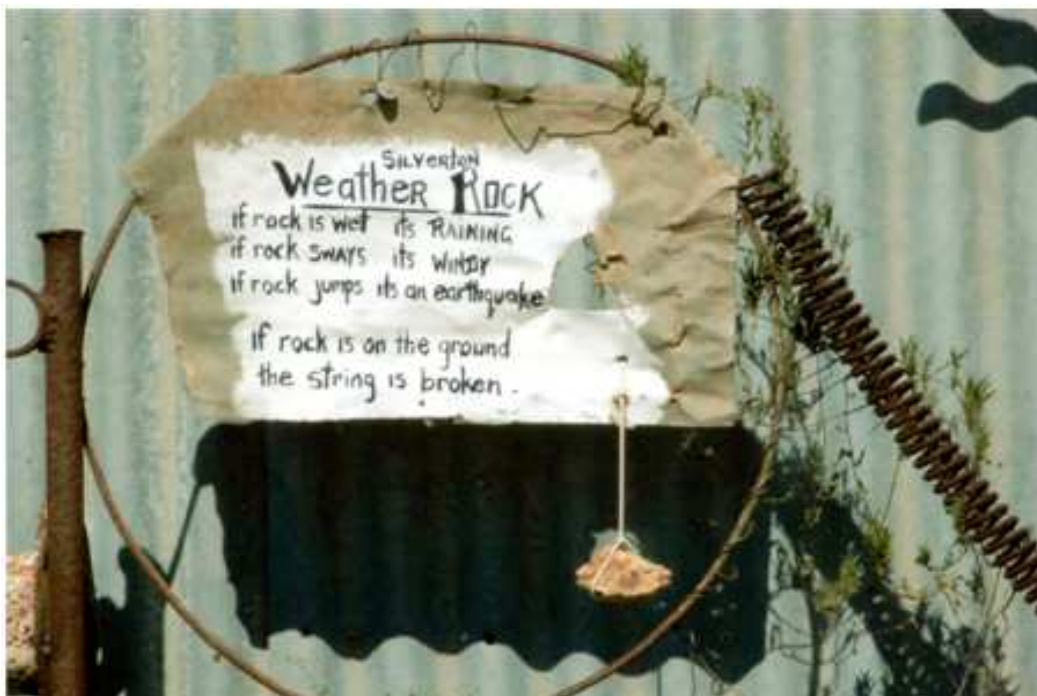 SILVERTON
Weather ROCK
if rock is wet its RAINING
if rock SWAYS its WINDY
if rock jumps its an earthquake
If rock is on the ground
the string is broken.